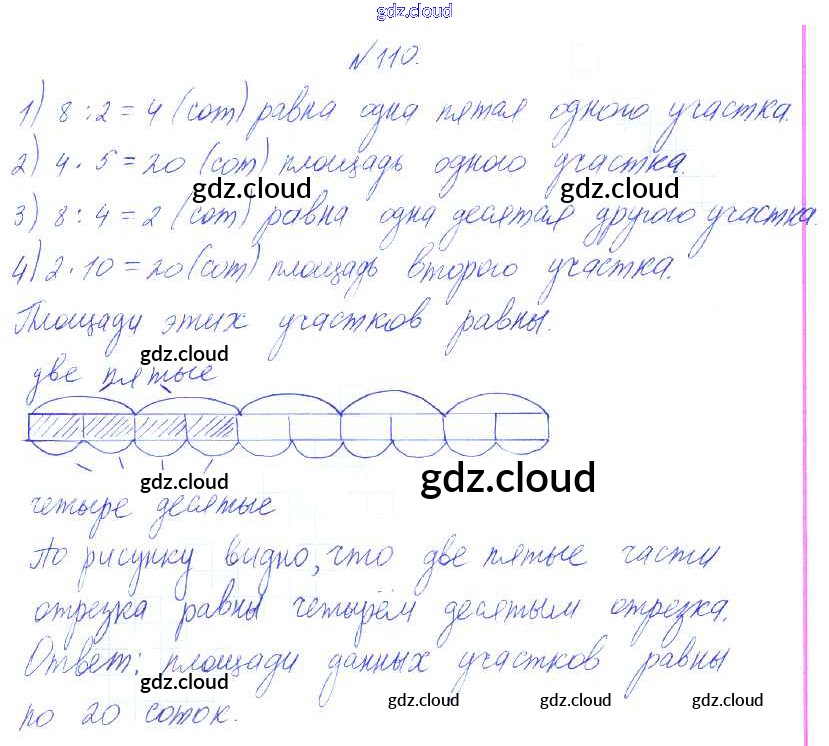 gdz.cloud
№110.
1) 8 : 2 = 4 (сот) равна одна пятая одного участка.
2) 4 · 5 = 20 (сот) площадь одного участка.
gdz.cloud gdz.cloud
3) 8 : 4 = 2 (сот) равна одна десятая другого участка.
4) 2 · 10 = 20 (сот) площадь второго участка.
Площади этих участков равны.
gdz.cloud
две пятые
gdz.cloud gdz.cloud
четыре десятые
По рисунку видно, что две пятые части
отрезка равны четырём десятым отрезка.
Ответ: площади данных участков равны
gdz.cloud
по 20 соток.
gdz.cloud gdz.cloud gdz.cloud